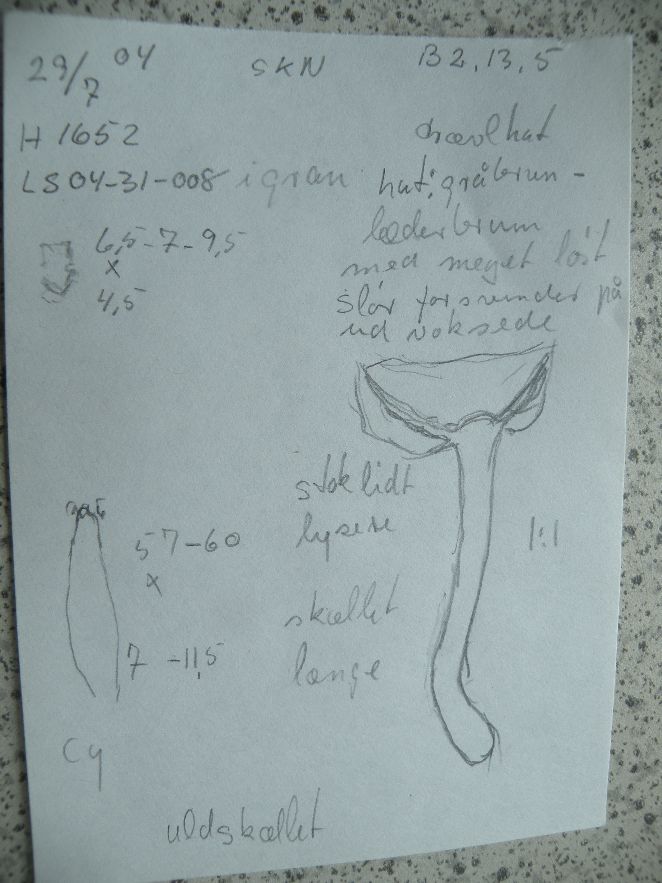 29/7 04 SKN B 2, 13, 5
H 1652
LS 04-31-008 i gran
6,5-7-9,5
x
4,5
trævlhat
hat: gråbrun -
læderbrun
med meget løst
slør forsvinder på
udvoksede
stok lidt
lysere
skællet
længe
1:1
57-60
x
7 -11,5
Cy
uldskællet